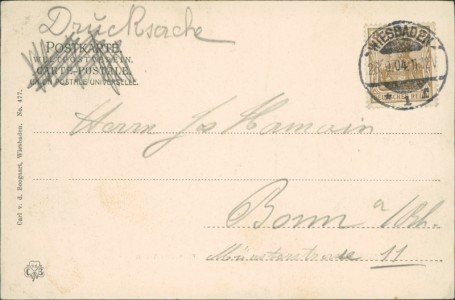 Drucksache
POSTKARTE.
WELTPOSTVEREIN.
CARTE-POSTALE
UNION POSTALE UNIVERSELLE.
WIESBADEN
1
Herrn Jos Hamain
Bonn a/Rh.
Münsterstrasse 11
Carl v. d. Boogaart, Wiesbaden. No. 477.